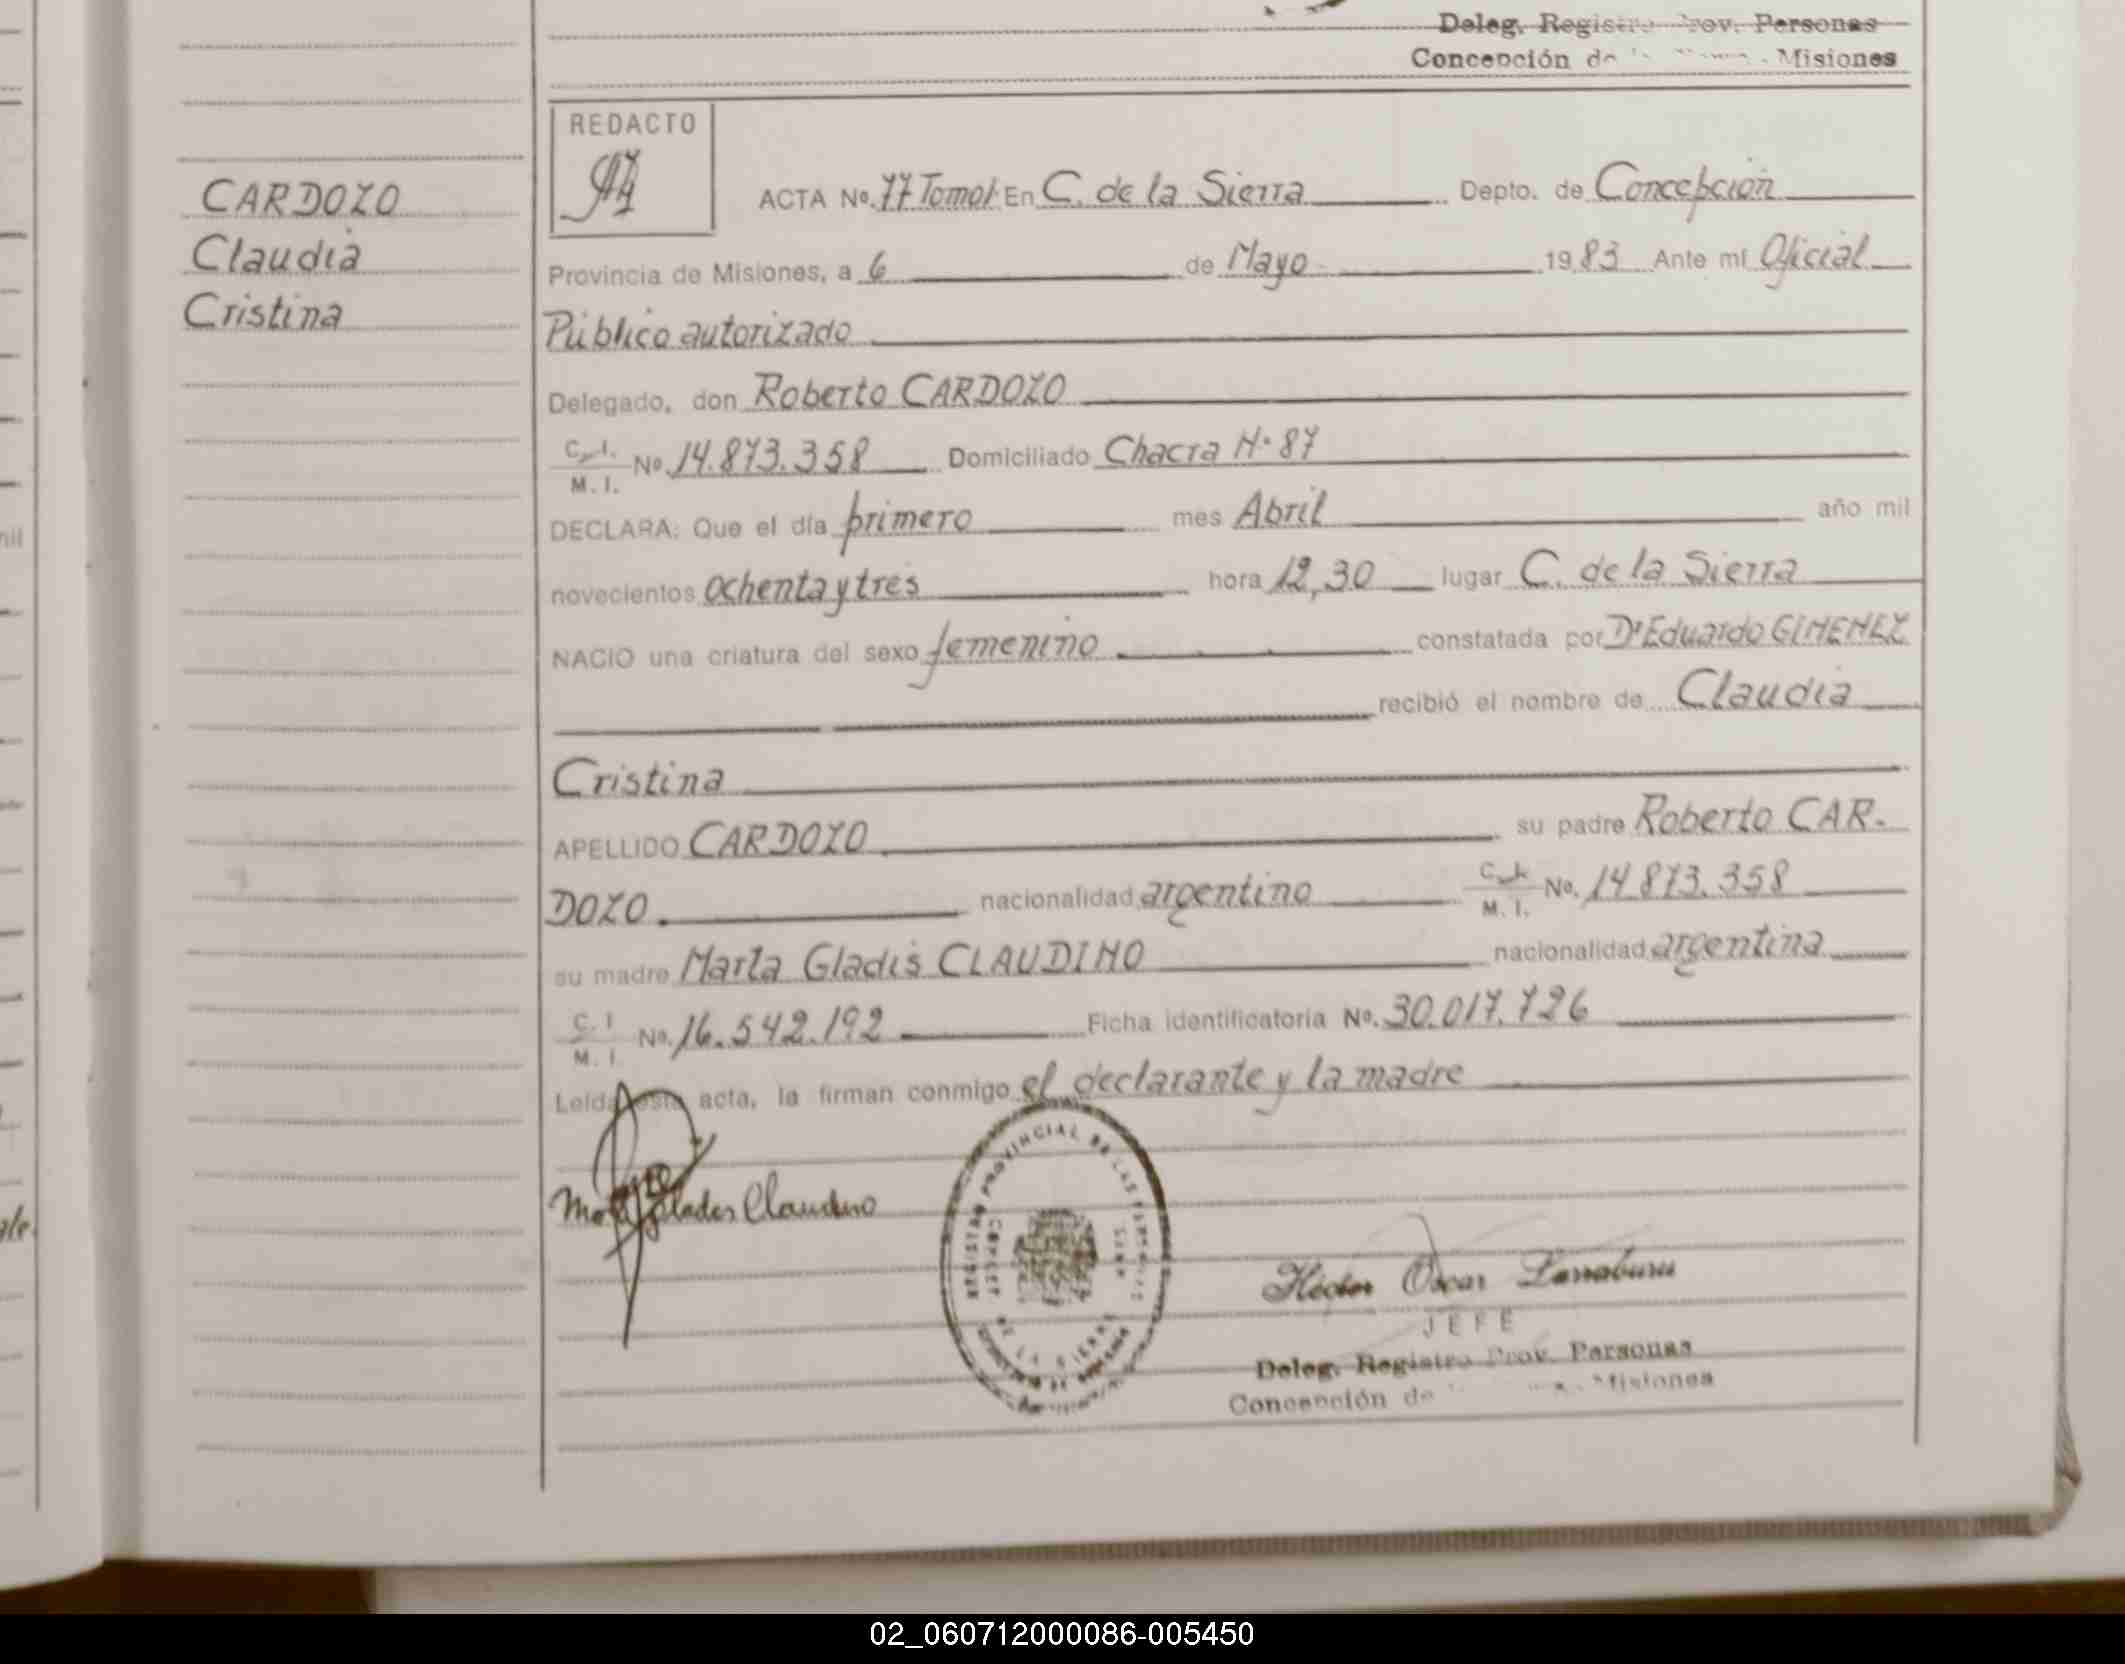 Deleg. Registro Prov. Personas
Concepción de Misiones
REDACTO
CARDOZO
Claudia
Cristina
ACTA No. 77 Tomo I En C. de la Sierra Depto. de Concepción
Provincia de Misiones, a 6 de Mayo 1983 Ante mí Oficial
Público autorizado
Delegado, don Roberto CARDOZO
C. I. / M. I. No 14.873.358 Domiciliado Chacra N° 87
DECLARA: Que el día primero mes Abril año mil
novecientos ochenta y tres hora 12,30 lugar C. de la Sierra
NACIO una criatura del sexo femenino constatada por Dr Eduardo GIMENEZ
recibió el nombre de Claudia
Cristina
APELLIDO CARDOZO su padre Roberto CAR-
DOZO nacionalidad argentino C. I. / M. I. No. 14.873.358
su madre Marta Gladis CLAUDINO nacionalidad argentina
C. I / M. I. No. 16.542.192 Ficha identificatoria No. 30.017.726
Leída esta acta, la firman conmigo el declarante y la madre
Claudino
REGISTRO PROVINCIAL DE LAS PERSONAS
DE LA SIERRA
Héctor Oscar Larraburu
JEFE
Deleg. Registro Prov. Personas
Concepción de Misiones
02_060712000086-005450